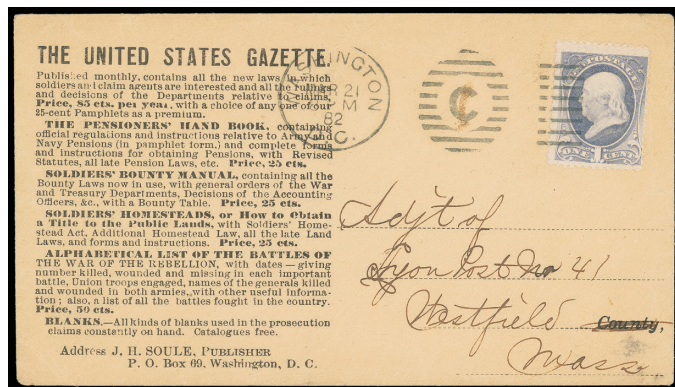 THE UNITED STATES GAZETTE.
Published monthly, contains all the new laws in which
soldiers and claim agents are interested and all the rulings
and decisions of the Departments relative to claims,
Price, 85 cts. per year, with a choice of any one of our
25-cent Pamphlets as a premium.
THE PENSIONERS' HAND BOOK, containing
official regulations and instructions relative to Army and
Navy Pensions (in pamphlet form,) and complete forms
and instructions for obtaining Pensions, with Revised
Statutes, all late Pension Laws, etc. Price, 25 cts.
SOLDIERS' BOUNTY MANUAL, containing all the
Bounty Laws now in use, with general orders of the War
and Treasury Departments, Decisions of the Accounting
Officers, &c., with a Bounty Table. Price, 25 cts.
SOLDIERS' HOMESTEADS, or How to Obtain
a Title to the Public Lands, with Soldiers' Home-
stead Act, Additional Homestead Law, all the late Land
Laws, and forms and instructions. Price, 25 cts.
ALPHABETICAL LIST OF THE BATTLES OF
THE WAR OF THE REBELLION, with dates—giving
number killed, wounded and missing in each important
battle, Union troops engaged, names of the generals killed
and wounded in both armies, with other useful informa-
tion; also, a list of all the battles fought in the country.
Price, 50 cts.
BLANKS.—All kinds of blanks used in the prosecution
claims constantly on hand. Catalogues free.
Address J. H. SOULE, PUBLISHER
P. O. Box 69, Washington, D. C.
WASHINGTON
21
M
82
C.
C
POSTAGE
1
Adj't of
Lyon Post No 41
Westfield County,
Mass